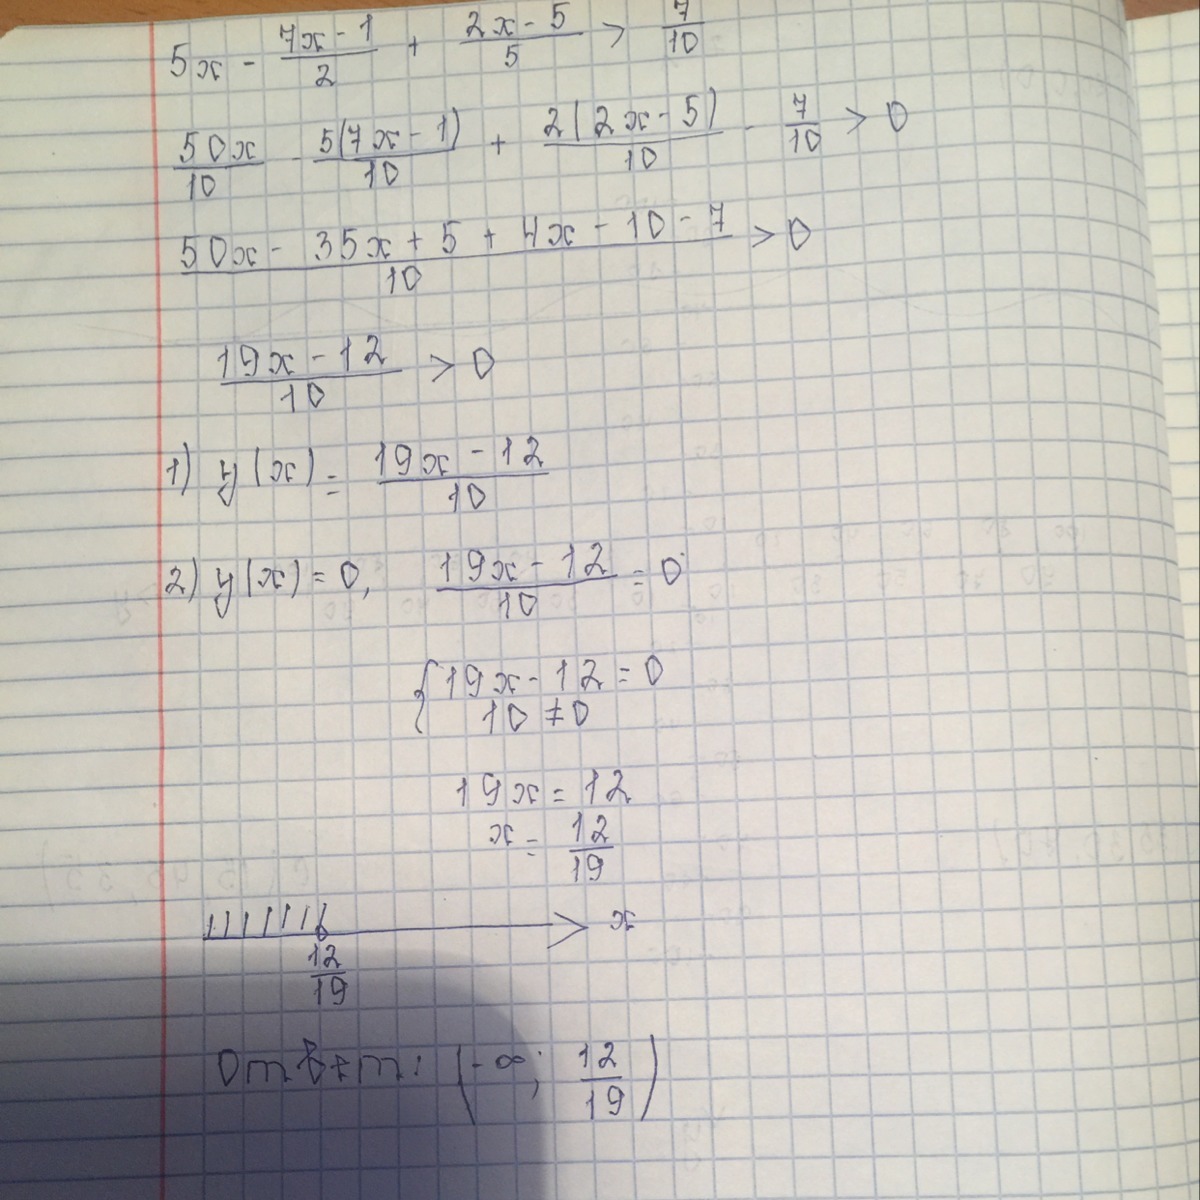 5x - \frac{7x - 1}{2} + \frac{2x - 5}{5} > \frac{7}{10}
\frac{50x}{10} - \frac{5(7x - 1)}{10} + \frac{2(2x - 5)}{10} - \frac{7}{10} > 0
\frac{50x - 35x + 5 + 4x - 10 - 7}{10} > 0
\frac{19x - 12}{10} > 0
1) y(x) = \frac{19x - 12}{10}
2) y(x) = 0, \frac{19x - 12}{10} = 0
{ 19x - 12 = 0
10 ≠ 0
19x = 12
x = \frac{12}{19}
x
\frac{12}{19}
Ответ: (-∞; \frac{12}{19})